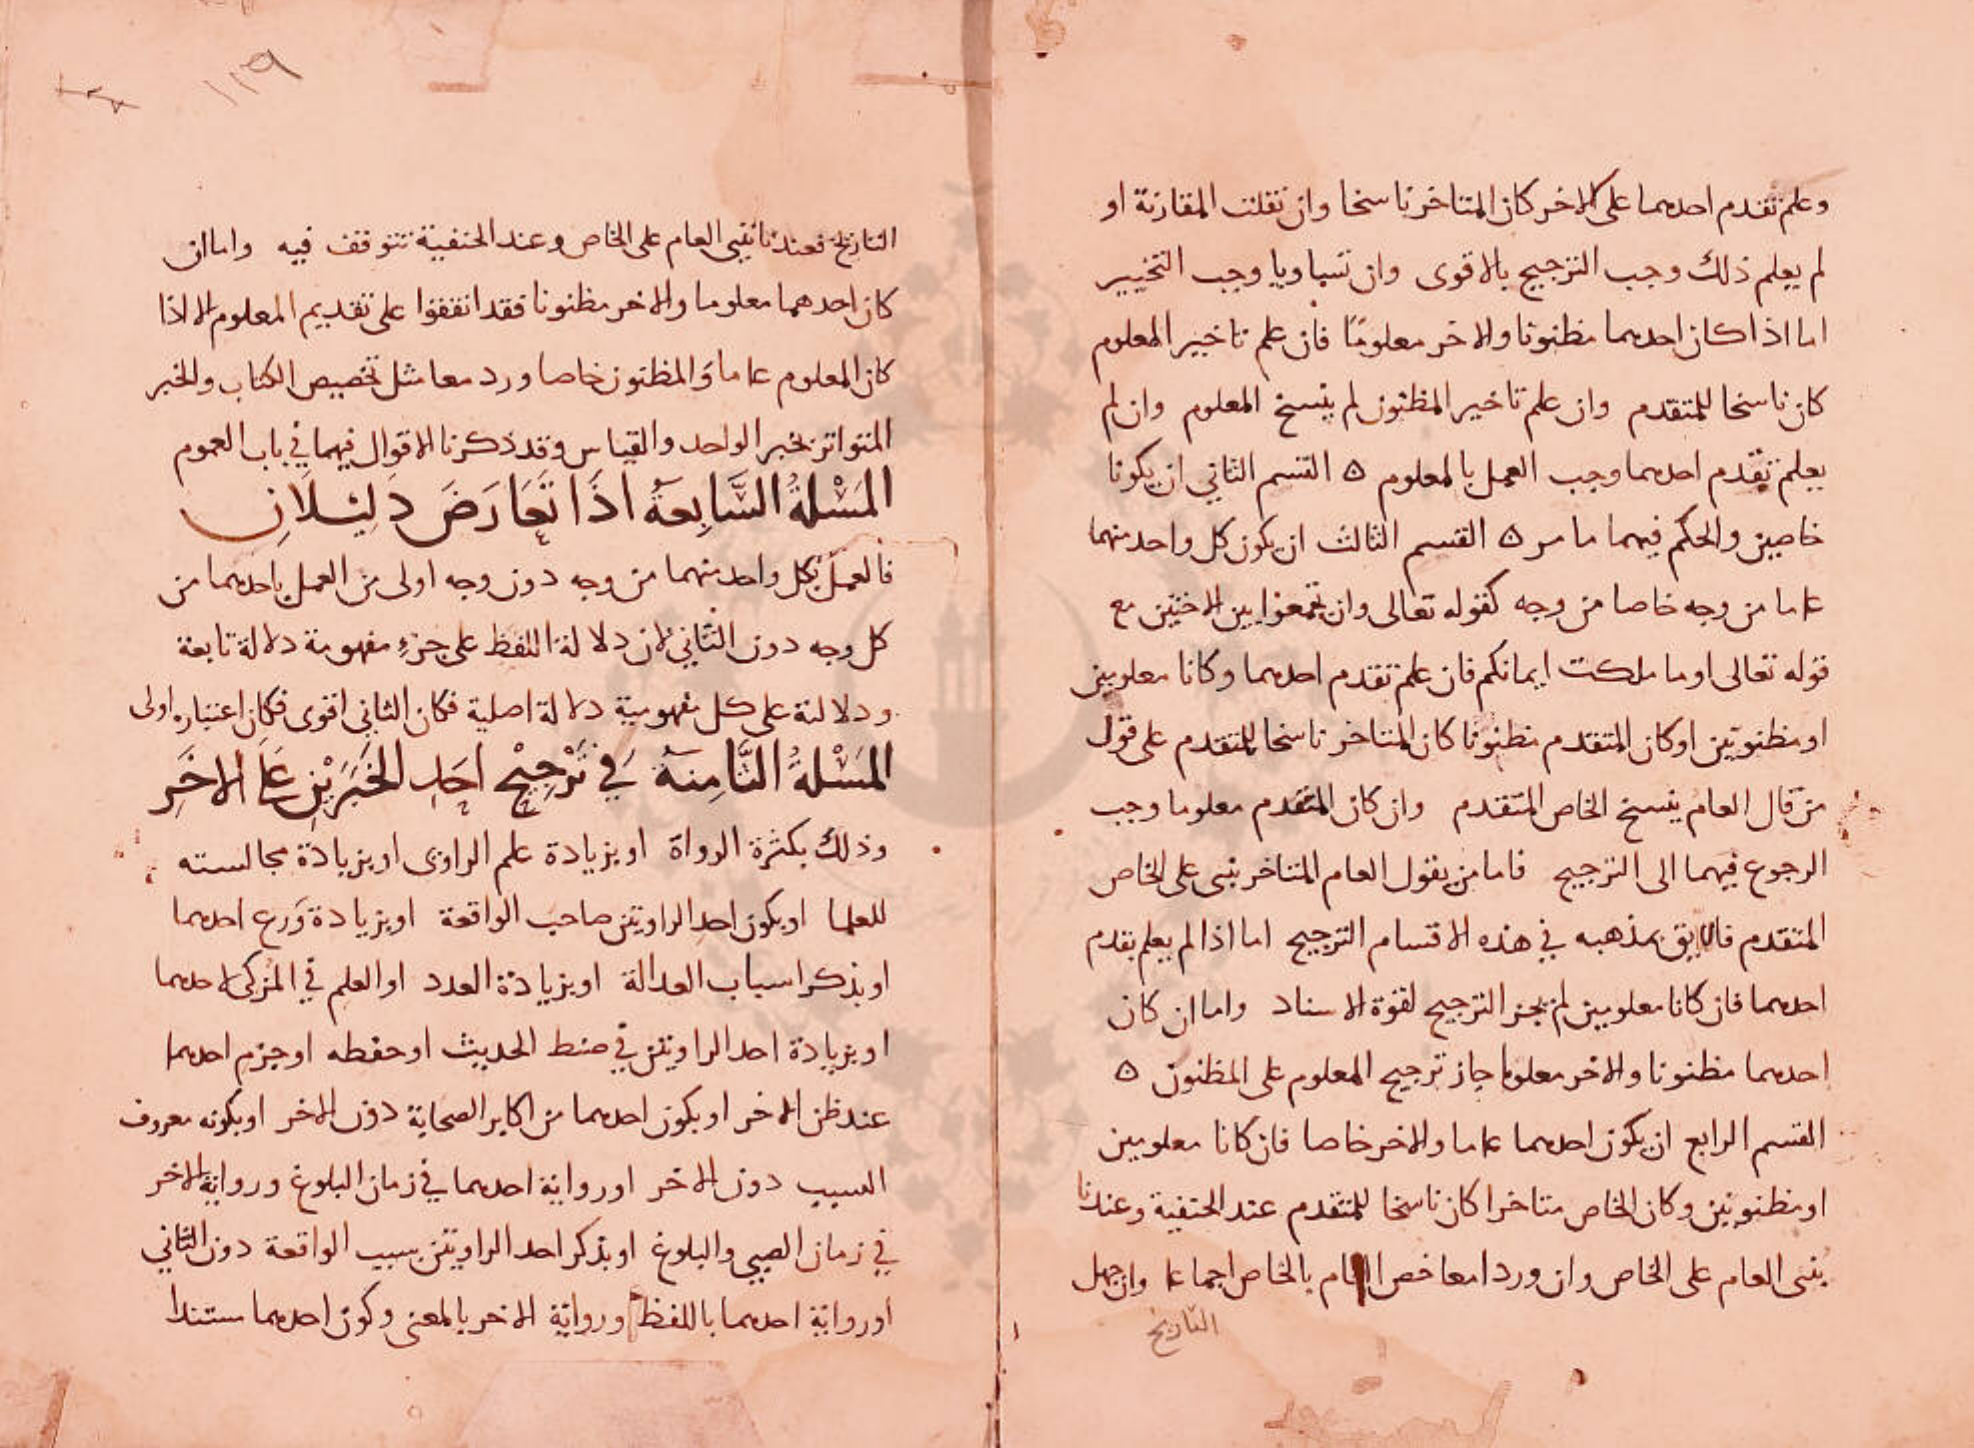 وعلم تقدم احدهما على الاخر كان المتاخر ناسخا وان نقلت المقارنة او
لم يعلم ذلك وجب الترجيح بالاقوى وان تساويا وجب التخيير
اما اذا كان احدهما مظنونا والاخر معلومًا فان علم تاخير المعلوم
كان ناسخا للمتقدم وان علم تاخير المظنون لم ينسخ المعلوم وان لم
يعلم تقدم احدهما وجب العمل بالمعلوم ه القسم الثاني ان يكونا
خاصين والحكم فيهما ما مر ه القسم الثالث ان يكون كل واحد منهما
عاما من وجه خاصا من وجه كقوله تعالى وان تجمعوا بين الاختين مع
قوله تعالى او ما ملكت ايمانكم فان علم تقدم احدهما وكانا معلومين
او مظنونين او كان المتقدم مظنونا كان المتاخر ناسخا للمتقدم على قول
من قال العام ينسخ الخاص المتقدم وان كان المتقدم معلوما وجب
الرجوع فيهما الى الترجيح فاما من يقول العام المتاخر يبنى على الخاص
المتقدم فاللايق بمذهبه في هذه الاقسام الترجيح اما اذا لم يعلم تقدم
احدهما فان كانا معلومين لم يجز الترجيح لقوة الاسناد واما ان كان
احدهما مظنونا والاخر معلوما جاز ترجيح المعلوم على المظنون ه
القسم الرابع ان يكون احدهما عاما والاخر خاصا فان كانا معلومين
او مظنونين وكان الخاص متاخرا كان ناسخا للمتقدم عند الحنفية وعندنا
يبنى العام على الخاص وان وردا معا خص العام بالخاص اجماعا وان جهل
التاريخ
١١٩
التاريخ فعندنا يبنى العام على الخاص وعند الحنفية نتوقف فيه واما ان
كان احدهما معلوما والاخر مظنونا فقد اتفقوا على تقديم المعلوم الا اذا
كان المعلوم عاما والمظنون خاصا وردا معا مثل تخصيص الكتاب والخبر
المتواتر بخبر الواحد والقياس وقد ذكرنا الاقوال فيهما في باب العموم
المَسْلةُ السَّابِعَةُ اذَا تَعَارَضَ دَلِيْلَانِ
فالعمل بكل واحد منهما من وجه دون وجه اولى من العمل باحدهما من
كل وجه دون الثاني لان دلالة اللفظ على جزءِ مفهومة دلالة تابعة
ودلالته على كل مفهومية دلالة اصلية فكان الثاني اقوى فكان اعتباره اولى
المَسْلةُ الثَّامِنَةُ فِي تَرْجِيْحِ احَدِ الخَبَرَيْنِ عَلَى الاخَرِ
وذلك بكثرة الرواة او بزيادة علم الراوى او بزيادة مجالسته
للعلما او بكون احد الراويين صاحب الواقعة او بزيادة وَرع احدهما
او بذكر اسباب العدالة او بزيادة العدد او العلم في المزكى لاحدهما
او بزيادة احد الراويين في ضبط الحديث او حفظه او جزم احدهما
عند ظن الاخر او بكون احدهما من اكابر الصحابة دون الاخر او بكونه معروف
النسب دون الاخر او رواية احدهما في زمان البلوغ ورواية الاخر
في زمان الصبى والبلوغ او بذكر احد الراويين سبب الواقعة دون الثاني
او رواية احدهما باللفظ ورواية الاخر بالمعنى وكون احدهما مستندا